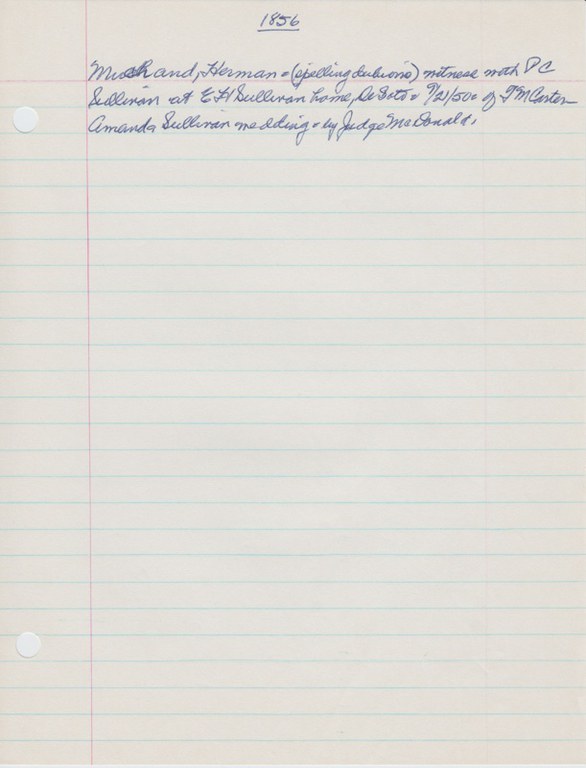 1856
Herman - (spelling dubious) witness with
Sullivan at E H Sullivan home, DeSoto - 9/21/50 - of Carter
Amanda Sullivan wedding - by Judge McDonald.